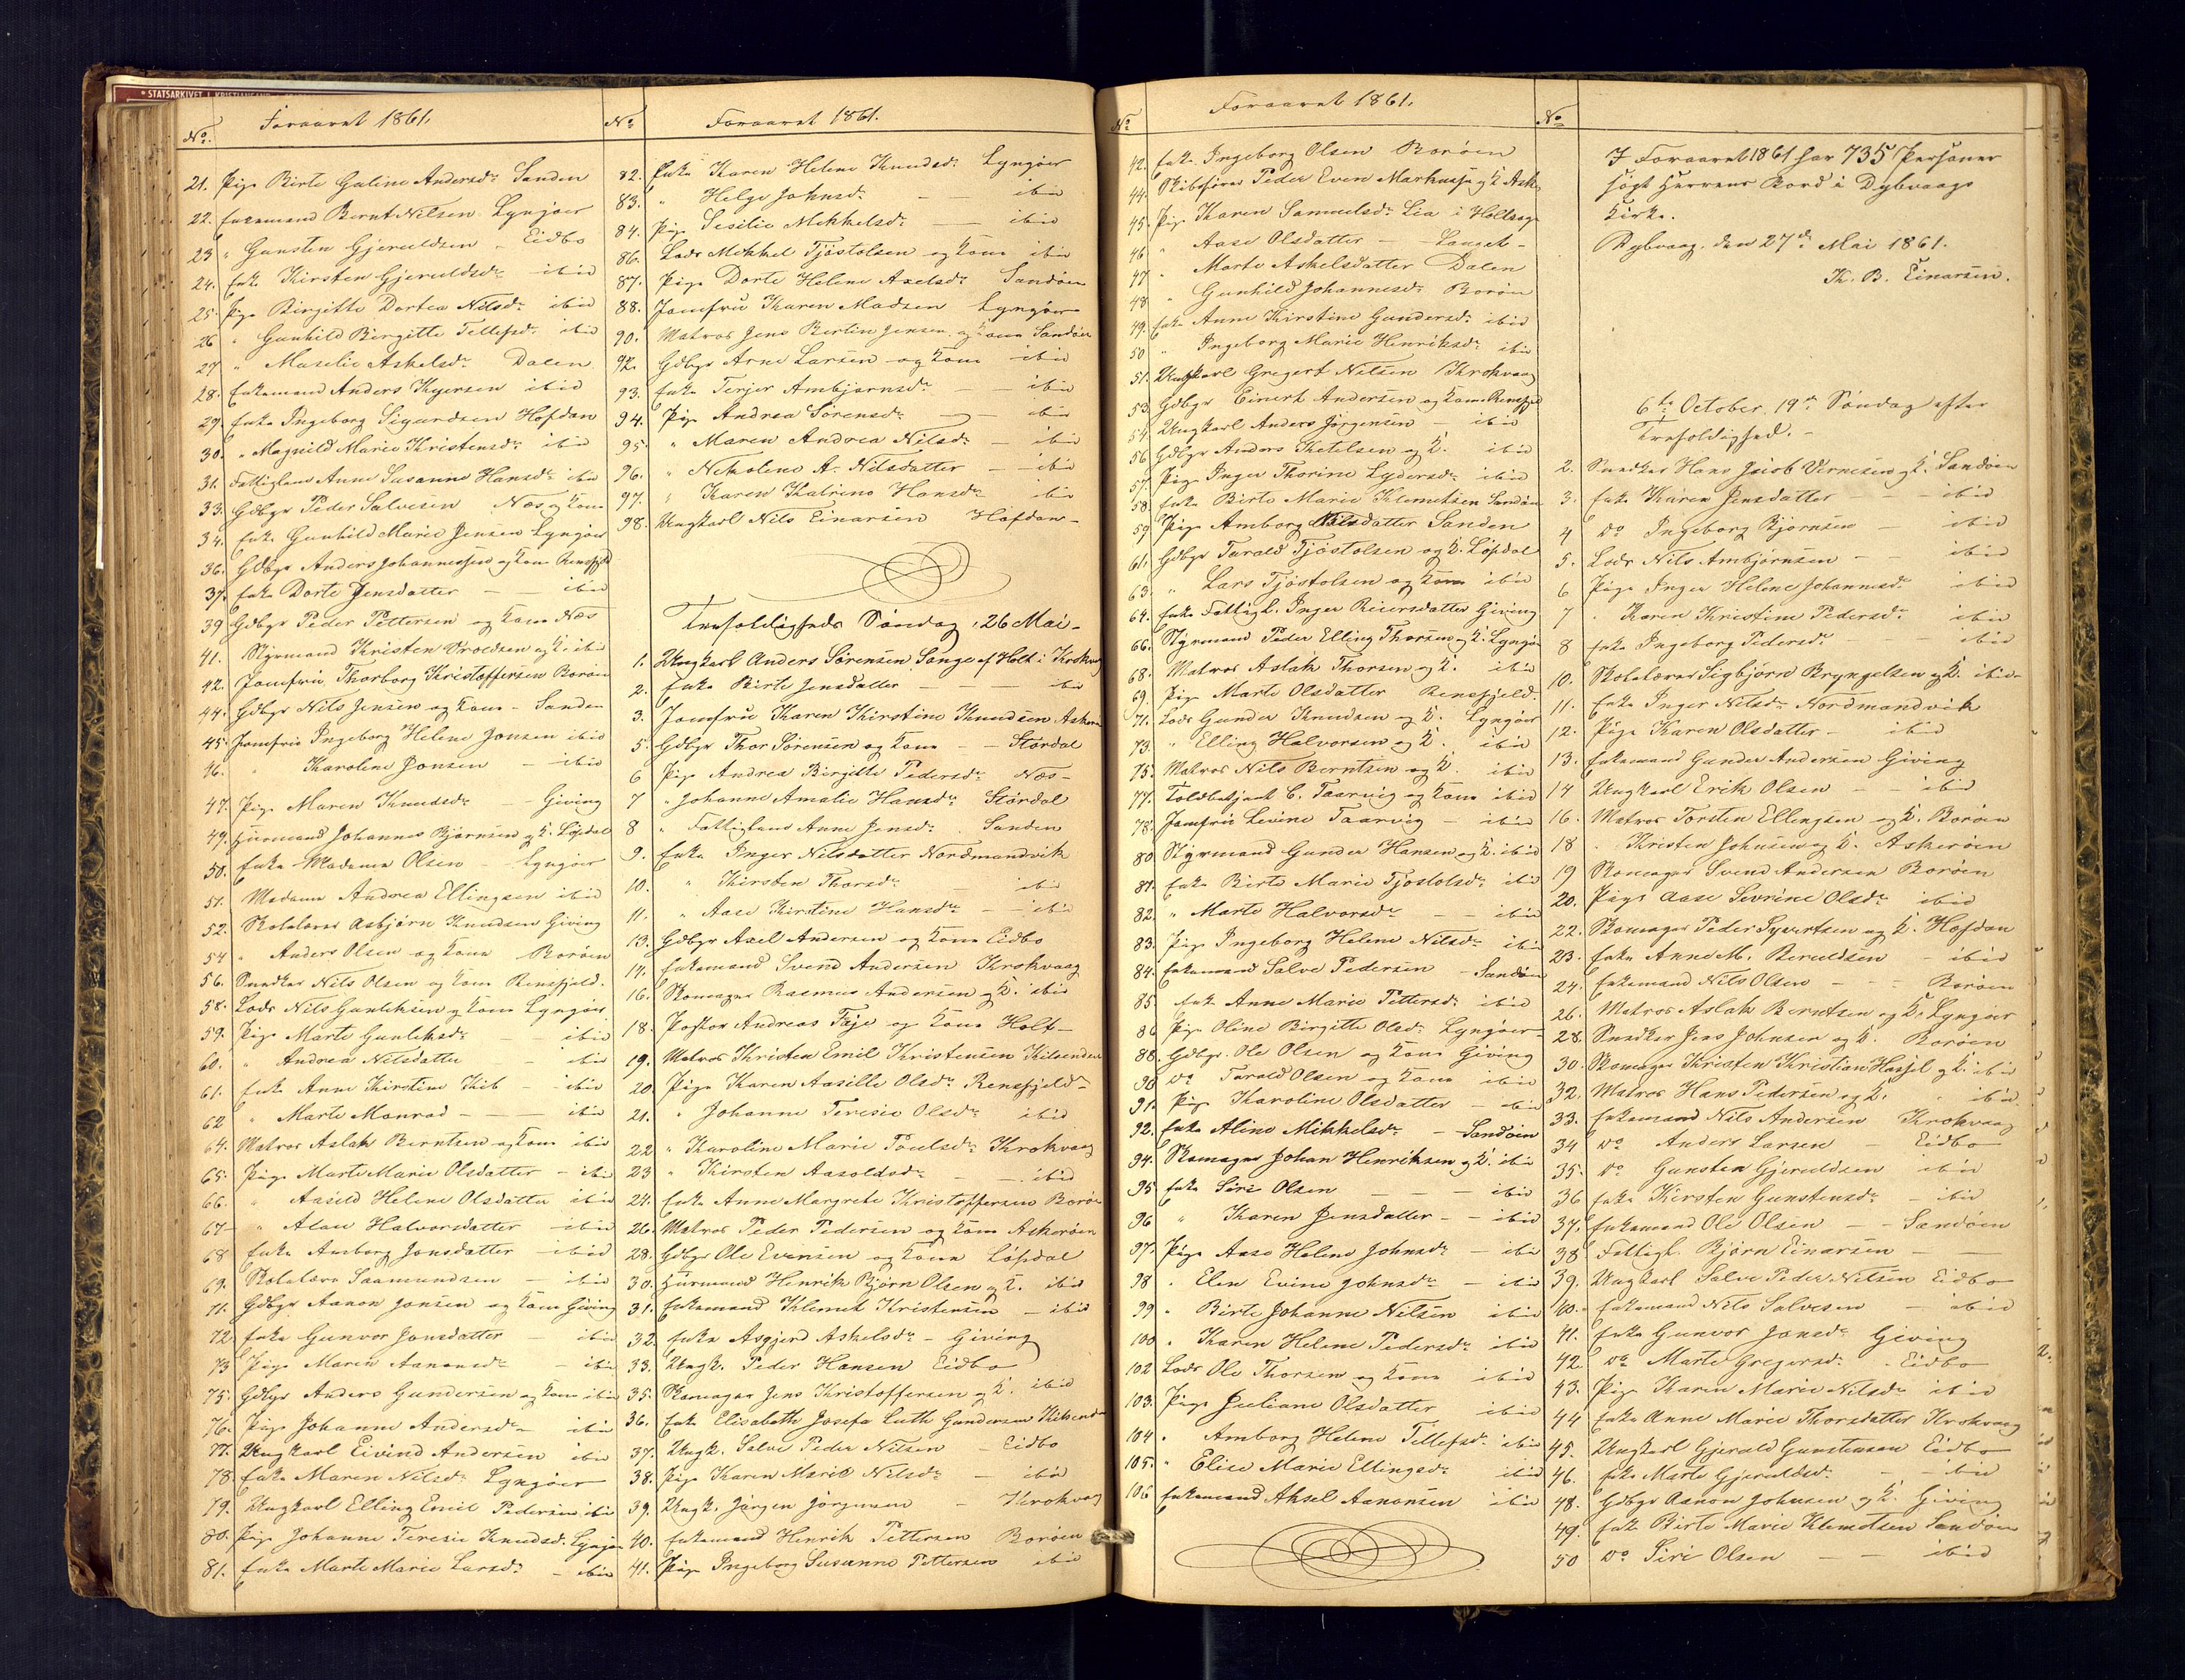 STATSARKIVET I KRISTIANSAND
Foraaret 1861.
No.
21. Pige Birte Galine Andersdr Sanden
22. Enkemand Bernt Nilsen Lyngöer
23 " Gunsten Gjeruldsen - Eidbo
24. Enke Kirsten Gjeruldsdr ibid
25. Pige Birgitte Dortea Nilsdr ibid
26 " Gunhild Birgitte Tellefsdr ibid
27 " Maselie Askelsdr Dalen
28. Enkemand Anders ibid
29. Enke Ingeborg Sigurdsen Hofdan
30. " Magnild Marie Kristensdr ibid
31. Fattiglem Anne Susanne Hansdr ibid
33. Gdbgr Peder Salvesen Næs og Kone
34. Enke Gunhild Marie Jensen Lyngöer
36. Gdbgr Anders Johannessen og Kone Rensfjeld
37. Enke Dorte Jensdatter - ibid
39 Gdbgr Peder Pettersen og Kone Næs
41. Styrmand Kristen Vroldsen og K. ibid
42. Jomfru Thorborg Kristoffersen Boröen
44. Gdbgr Nils Jensen og Kone - Sanden
45. Jomfrue Ingeborg Helene Jonsen ibid
46. " Karoline Jonsen - ibid
47. Pige Maren Knudsdr - Giving
49. Huusmand Johannes Bjørnsen og K. Löfdal
50. Enke Madame Olsen - Lyngöer
51. Madame Andrea Ellingsen ibid
52. Skolelærer Asbjørn Knudsen Giving
54 " Anders Olsen og Kone Boröen
56. Snedker Nils Olsen og Kone Rensfjeld.
58. Lods Nils Gunleksen og Kone Lyngöer
59. Pige Marte Gunleksdr - ibid
60. " Andrea Nilsdatter - ibid
61. Enke Anne Kirstine Kib - ibid
62 " Marte Monrad - ibid
64. Matros Aslak Berntsen og Kone ibid
65. Pige Marte Marie Olsdatter - ibid
66. " Aasild Helene Olsdatter ibid
67 " Alau Halvorsdatter ibid
68 Enke Amborg Jonsdatter ibid
69. Skolelærer Saamundsen - ibid
71. Gdbgr Aanon Jonsen og Kone Giving
72 Enke Gunvor Jonsdatter ibid
73 Pige Maren Aanonsdr - ibid
75. Gdbgr Anders Gundersen og Kone ibid
76. Pige Johanne Andersdr - ibid
77. Ungkarl Eivind Andersen ibid
78. Enke Maren Nilsdr Lyngöer
79. Ungkarl Elling Emil Pedersen ibid
80. Pige Johanne Teresie Knudsdr Lyngöer
81. Enke Marte Marie Larsdr - ibid
No
Foraaret 1861.
82. Enke Karen Helene Knudsdr Lyngöer
83. " Helge Johnsdr - ibid
84. Pige Sesilie Mikkelsdr - ibid
86. Lods Mikkel Tjöstolsen og Kone ibid
87. Pige Dorte Helene Axelsdr Sandöen
88. Jomfru Karen Madsen Lyngöer
90. Matros Jens Bertin Jensen og Kone Sandöen
92. Gdbgr Arne Larsen og Kone ibid
93. Enke Terjer Ambjørnsdr - ibid
94. Pige Andrea Sørensdr - ibid
95. " Maren Andrea Nilsdr - ibid
96. " Nikoline A. Nilsdatter - ibid
97. " Karen Katrine Hansdr ibid
98. Ungkarl Nils Einarsen Hofdan -
Trefoldigheds Söndag, 26 Mai -
1. Ungkarl Anders Sörensen Songe af Holt i Krokvaag
2. Enke Birte Jensdatter - - ibid
3. Jomfru Karen Kirstine Knudsen Askeröen
5. Gdbgr Thor Sörensen og Kone - - Stördal
6 Pige Andrea Birgitte Pedersdr Næs -
7 " Johanne Amalie Hansdr Stördal
8 " Fattiglem Anne Jensdr Sanden
9. Enke Inger Nilsdatter Nordmandvik
10. " Kirsten Thorsdr ibid
11. " Aase Kirstine Hansdr - ibid
13. Gdbgr Axel Andersen og Kone Eidbo
14. Enkemand Svend Andersen Krokvaag
16. Skomager Rasmus Andersen og K. ibid
18. Pastor Andreas Faye og Kone Holt -
19. Matros Kristen Emil Kristensen Kilsenden
20. Pige Karen Aasille Olsdr Rensfjeld -
21. " Johanne Teresie Olsdr ibid
22 " Karoline Marie Poulsdr Krokvaag
23 " Kirsten Aasoldsdr - ibid
24. Enke Anne Margrete Kristoffersen Boröen
26. Matros Peder Pedersen og Kone Askeröen
28. Gdbgr Ole Evensen og Kone Löfdal
30. Huusmand Henrik Bjørn Olsen og K. ibid
31. Enkemand Klemet Kristensen - ibid
32. Enke Asgjerd Askelsdr - Giving
33. Ungk. Peder Hansen Eidbo
35. Skomager Jens Kristoffersen og K. ibid
36. Enke Elisabeth Josefa Luth Gundersen Kilsenden
37. Ungk. Salve Peder Nilsen - Eidbo
38. Pige Karen Marie Nilsdr - ibid
39. Ungk. Jörgen Jörgensen - Krokvaag
40. Enkemand Henrik Pettersen Boröen
41. Pige Ingeborg Susanne Pettersen ibid
No
Foraaret 1861.
42. Enke Ingeborg Olsen Boröen
44. Skibsförer Peder Even Markussen og K. Ask.
45. Pige Karen Samuelsdr Lia i Holt
46 " Aase Olsdatter - Langet -
47 " Marte Askelsdatter Dalen
48 " Gunhild Johannesdr Boröen
49. Enke Anne Kirstine Gundersdr ibid
50 " Ingeborg Marie Henriksdr ibid
51. Ungkarl Gregert Nilsen Krokvaag
53. Gdbgr Einert Andersen og Kone Rensfjeld
54. Ungkarl Anders Jörgensen - ibid
56. Gdbgr Anders Ketilsen og K. ibid
57. Pige Inger Thorine Lydersdr ibid
58. Enke Birte Marie Klemetsen Sandöen
59 Pige Amborg Nilsdatter Sanden
61. Gdbgr Tarald Tjöstolsen og K. Löfdal
63. " Lars Tjöstolsen og Kone ibid
64. Enke Fattigl. Inger Reiersdatter Giving
66. Styrmand Peder Elling Thorsen og K. Lyngöer
68. Matros Aslak Thorsen og K. ibid
69. Pige Marte Olsdatter Rensfjeld.
71. Lods Gunder Knudsen og K. Lyngöer
73. " Elling Halvorsen og K. ibid
75. Matros Nils Berntsen og K. ibid
77. Toldbetjent C. Taarvig og Kone ibid
78. Jomfru Levine Taarvig - ibid
80 Styrmand Gunder Hansen og K. ibid
81. Enke Birte Marie Tjöstolsdr ibid
82. " Marte Halvorsdr - - ibid
83. Pige Ingeborg Helene Nilsdr ibid
84. Enkemand Salve Pedersen - Sandöen
85. Enke Anne Marie Pettersdr ibid
86 Pige Oline Birgitte Olsdr Lyngöer
88. Gdbgr. Ole Olsen og Kone Giving
90 do Tarald Olsen og Kone ibid
91. Pige Karoline Olsdatter - ibid
92. Enke Aline Mikkelsdr - Sandöen
94. Skomager Johan Henriksen og K. ibid
95 Enke Siri Olsen - - - ibid
96 " Karen Jensdatter - - ibid
97. Pige Aase Helene Johnsdr - ibid
98 " Elen Evine Johnsdr - ibid
99 " Birte Johanne Nilsen ibid
100 " Karen Helene Pedersdr ibid
102 Lods Ole Thorsen og Kone ibid
103. Pige Juliane Olsdatter ibid
104 " Amborg Helene Tellefsdr ibid
105. " Elise Marie Ellingsdr ibid
106 Enkemand Aksel Aanonsen ibid
No
I Foraaret 1861 har 735 Personer
sögt Herrens Bord i Dybvaags
Kirke.
Dybvaag, den 27de Mai 1861.
K. B. Einarsen.
6te October. 19de Söndag efter
Trefoldighed. -
2. Snedker Hans Jacob Vernesen og K. Sandöen
3. Enke Karen Jensdatter - - ibid
4 do Ingeborg Bjørnsen - ibid
5. Lods Nils Ambjørnsen - ibid
6 Pige Inger Helene Johannesdr ibid
7 " Karen Kristine Pedersdr ibid
8 Enke Ingeborg Pedersdr ibid
10. Skolelærer Sigbjørn Bryngelsen og K. ibid -
11. Enke Inger Nilsdr Nordmandvik
12. Pige Karen Olsdatter - ibid
13. Enkemand Gunder Andersen Giving
14 Ungkarl Erik Olsen - - ibid
16. Matros Torsten Ellingsen og K. Boröen
18 " Kristen Johnsen og K. Askeröen
19 Skomager Svend Andersen Boröen
20. Pige Aase Sevrine Olsdr ibid
22. Skomager Peder Syvertsen og K. Hofdan
23. Enke Anne M. Beruldsen - ibid
24. Enkemand Nils Olsen - - Boröen
26. Matros Aslak Berntsen og K. Lyngöer
28. Snedker Jens Johnsen og K. Boröen
30. Skomager Kristen Kristian Hassel og K. ibid
32. Matros Hans Pedersen og K. " ibid.
33. Enkemand Nils Andersen Krokvaag
34 do Anders Larsen - Eidbo
35. do Gunsten Gjeruldsen ibid
36 Enke Kirsten Gunstensdr - ibid
37. Enkemand Ole Olsen - - Sandöen
38 Fattigl. Bjørn Einarsen - -
39. Ungkarl Salve Peder Nilsen Eidbo
40. Enkemand Nils Salvesen ibid
41. Enke Gunvor Jonsdr Giving
42 do Marte Gregersdr - Eidbo
43. Pige Karen Marie Nilsdr ibid
44 Enke Anne Marie Thorsdatter Krokvaag
45. Ungkarl Gjeruld Gunstensen Eidbo
46. Enke Marte Gjeruldsdr - - ibid
48. Gdbgr Aanon Johnsen og K. Giving
49. Enke Birte Marie Klemetsen Sandöen
50 do Siri Olsen - - ibid